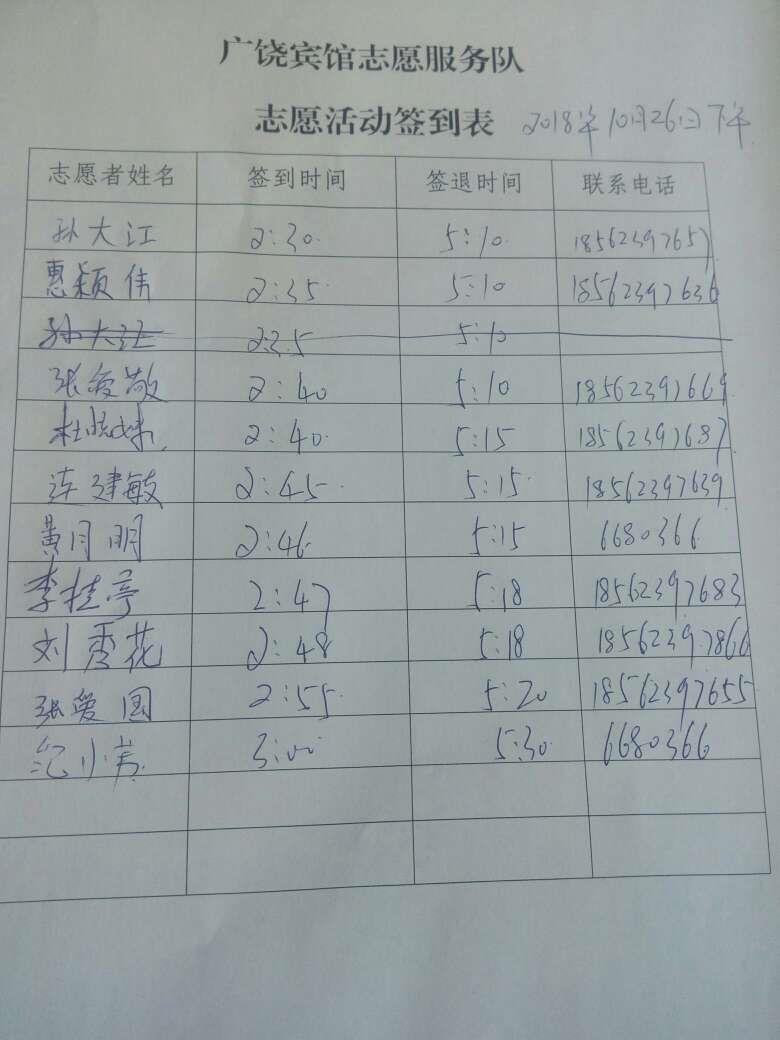 广饶宾馆志愿服务队
志愿活动签到表 2018年10月26日下午
志愿者姓名 签到时间 签退时间 联系电话
孙大江 2:30 5:10 18562397657
惠颖伟 2:35 5:10 18562397636
孙大江 2:35 5:10
张爱敬 2:40 5:10 18562397669
杜 2:40 5:15 18562397687
连建敏 2:45 5:15 18562397639
黄月明 2:46 5:15 6680366
李桂亭 2:47 5:18 18562397683
刘秀花 2:48 5:18 18562397866
张爱国 2:55 5:20 18562397655
纪小芳 3:00 5:30 6680366